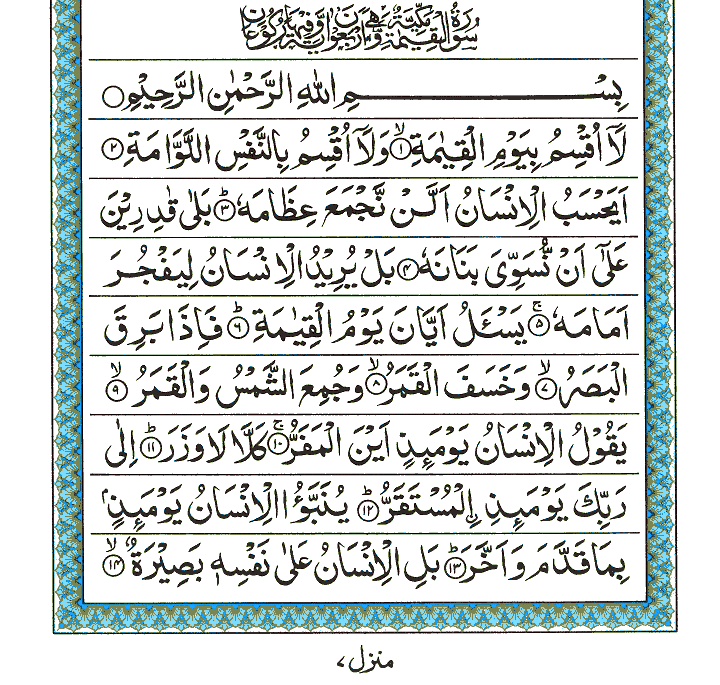 سُوۡرَةُ الۡقِيٰمَةِ مَكِّيَّةٌ وَّهِىَ اَرۡبَعُوۡنَ اٰيَةً وَّفِيۡهَا رُكُوۡعَانِ
بِسۡمِ اللّٰهِ الرَّحۡمٰنِ الرَّحِيۡمِ
لَاۤ اُقۡسِمُ بِيَوۡمِ الۡقِيٰمَةِۙ‏﴿۱﴾ وَلَاۤ اُقۡسِمُ بِالنَّفۡسِ اللَّوَّامَةِ‏﴿۲﴾
اَيَحۡسَبُ الۡاِنۡسَانُ اَلَّنۡ نَّجۡمَعَ عِظَامَهٗؕ‏﴿۳﴾ بَلٰى قٰدِرِيۡنَ
عَلٰٓى اَنۡ نُّسَوِّىَ بَنَانَهٗ‏﴿۴﴾ بَلۡ يُرِيۡدُ الۡاِنۡسَانُ لِيَفۡجُرَ
اَمَامَهٗ‌ۚ‏﴿۵﴾ يَسۡـَٔلُ اَيَّانَ يَوۡمُ الۡقِيٰمَةِؕ‏﴿۶﴾ فَاِذَا بَرِقَ
الۡبَصَرُۙ‏﴿۷﴾ وَخَسَفَ الۡقَمَرُۙ‏﴿۸﴾ وَجُمِعَ الشَّمۡسُ وَالۡقَمَرُۙ‏﴿۹﴾
يَقُوۡلُ الۡاِنۡسَانُ يَوۡمَٮِٕذٍ اَيۡنَ الۡمَفَرُّ‌ۚ‏﴿۱۰﴾ كَلَّا لَا وَزَرَؕ‏﴿۱۱﴾ اِلٰى
رَبِّكَ يَوۡمَٮِٕذٍ اۨلۡمُسۡتَقَرُّؕ‏﴿۱۲﴾ يُنَبَّؤُا الۡاِنۡسَانُ يَوۡمَٮِٕذٍۢ
بِمَا قَدَّمَ وَاَخَّرَؕ‏﴿۱۳﴾ بَلِ الۡاِنۡسَانُ عَلٰى نَفۡسِهٖ بَصِيۡرَةٌ ۙ‏﴿۱۴﴾
منزل ۷